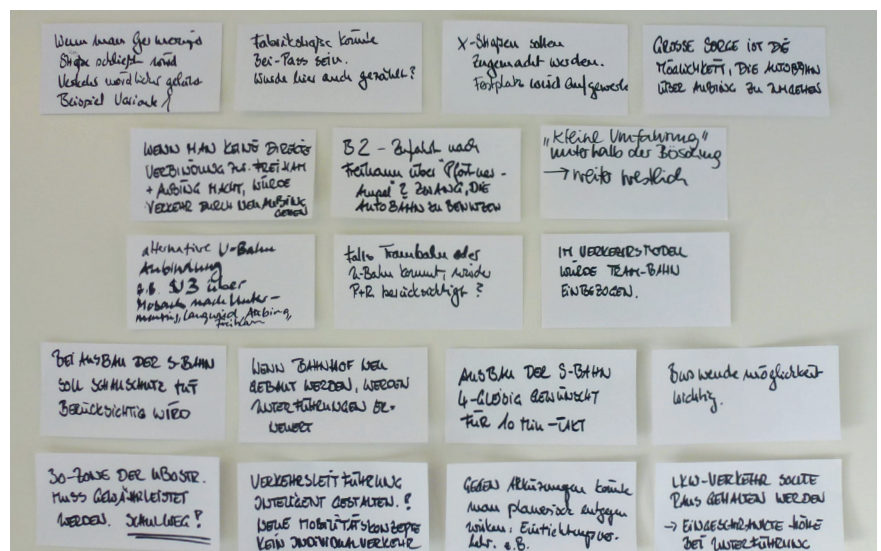 Wenn man Germerings
Straße schließt wird
Verkehr wird
Beispiel Variante 1
Fabrikstraße könnte
Bei-Pass sein.
Wurde hier auch gezählt?
X-Straßen sollen
zugemacht werden.
Festplatz wird aufgeweck
GROSSE SORGE IST DIE
MÖGLICHKEIT, DIE AUTOBAHN
ÜBER AUBING ZU UMGEHEN
WENN MAN KEINE DIREKTE
VERBINDUNG ZW. FREIHAM
+ AUBING MACHT, WÜRDE
VERKEHR DURCH NEUAUBING
GEHEN
B2 - Zufahrt nach
Freiham über "Pförtner-
Ampel" ? ZWANG, DIE
AUTOBAHN ZU BENUTZEN
„Kleine Umfahrung"
unterhalb der Böschung
→ weiter westlich
alternative U-Bahn
Anbindung
z.B. U3 über
Moosach nach Unter-
menzing, Langwied, Aubing,
Freiham
Falls Trambahn oder
U-Bahn kommt, wurde
P+R berücksichtigt?
IM VERKEHRSMODELL
WURDE TRAM-BAHN
EINBEZOGEN.
BEI AUSBAU DER S-BAHN
SOLL SCHALLSCHUTZ MIT
BERÜCKSICHTIG WIRD
WENN BAHNHOF NEU
GEBAUT WERDEN, WERDEN
UNTERFÜHRUNGEN ER-
NEUERT
AUSBAU DER S-BAHN
4-GLEISIG GEWÜNSCHT
FÜR 10 MIN-TAKT
Buswendemöglichkeit
wichtig.
30-ZONE DER UBOSTR.
MUSS GEWÄHRLEISTET
WERDEN. SCHULWEG!
VERKEHRSLEITFÜHRUNG
INTELLIGENT GESTALTEN.?
NEUE MOBILITÄTSKONZEPTE
KEIN INDIVIDUALVERKEHR
GEGEN ABKÜRZUNGEN könnte
man planerisch entgegen
wirken: Einrichtungsver-
kehr. z.B.
LKW-VERKEHR SOLLTE
RAUS GEHALTEN WERDEN
→ EINGESCHRÄNKTE HÖHE
BEI UNTERFÜHRUNG